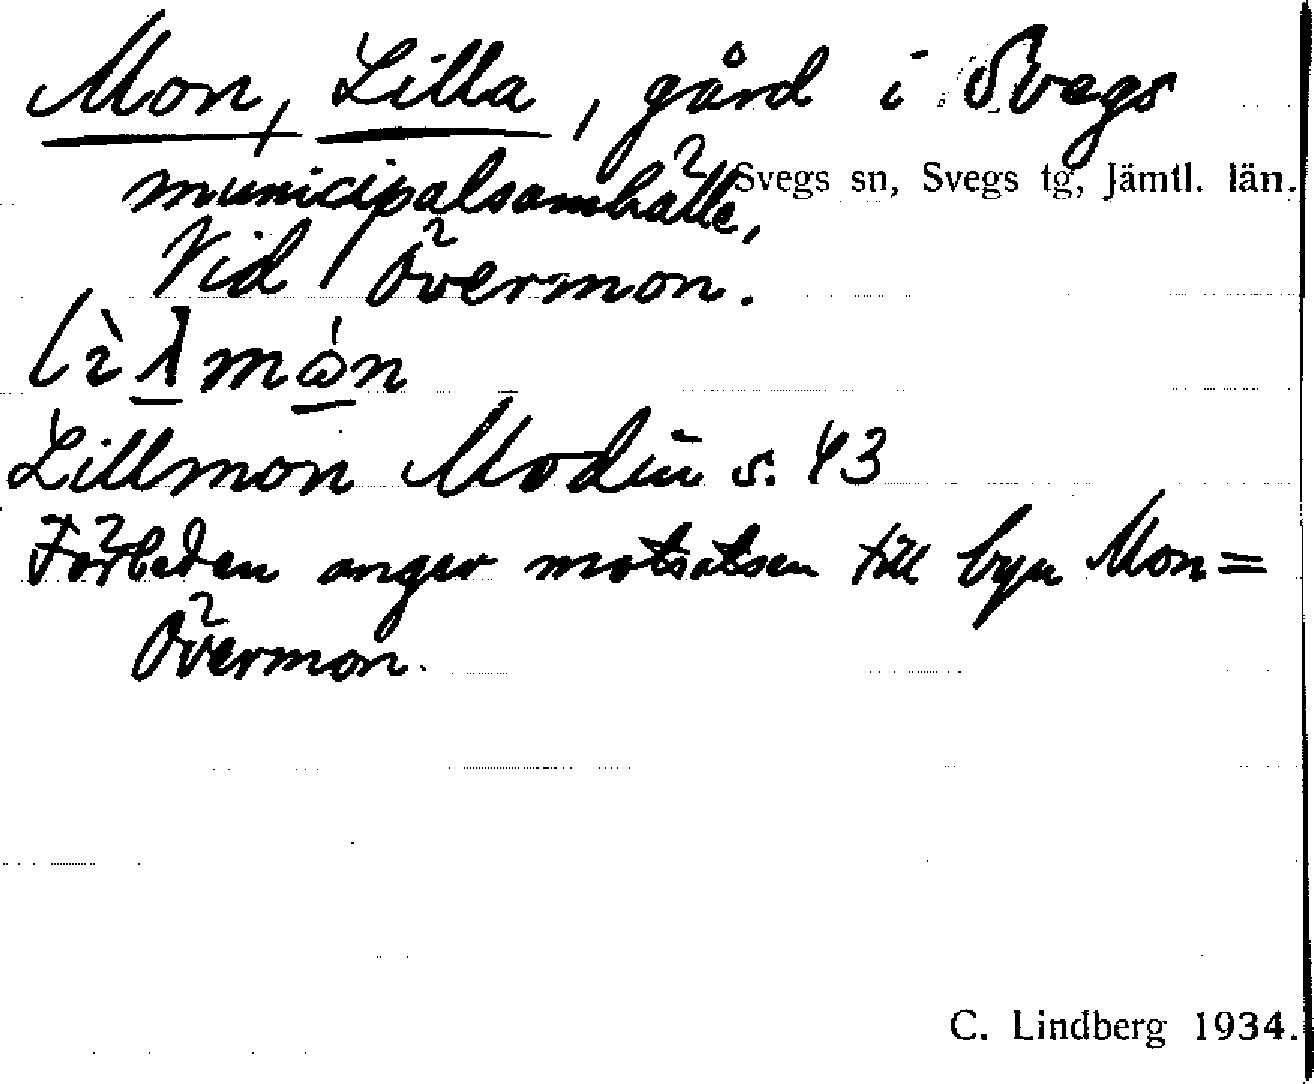 Mon, Lilla, gård i Svegs
Svegs sn, Svegs tg, Jämtl. län.
municipalsamhälle,
Vid Övermon.
lìλmɷ́n
Lillmon Modin s. 43
Förleden anger motsatsen till byn Mon =
Övermon.
C. Lindberg 1934.